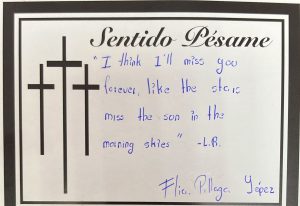 Sentido Pésame
"I think I'll miss you
forever, like the stars
miss the son in the
morning skies" -L.R.
Flia. Pillaga Yépez